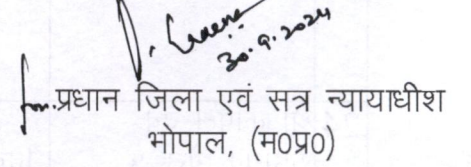 30.9.2024
for. प्रधान जिला एवं सत्र न्यायाधीश
भोपाल, (म०प्र०)